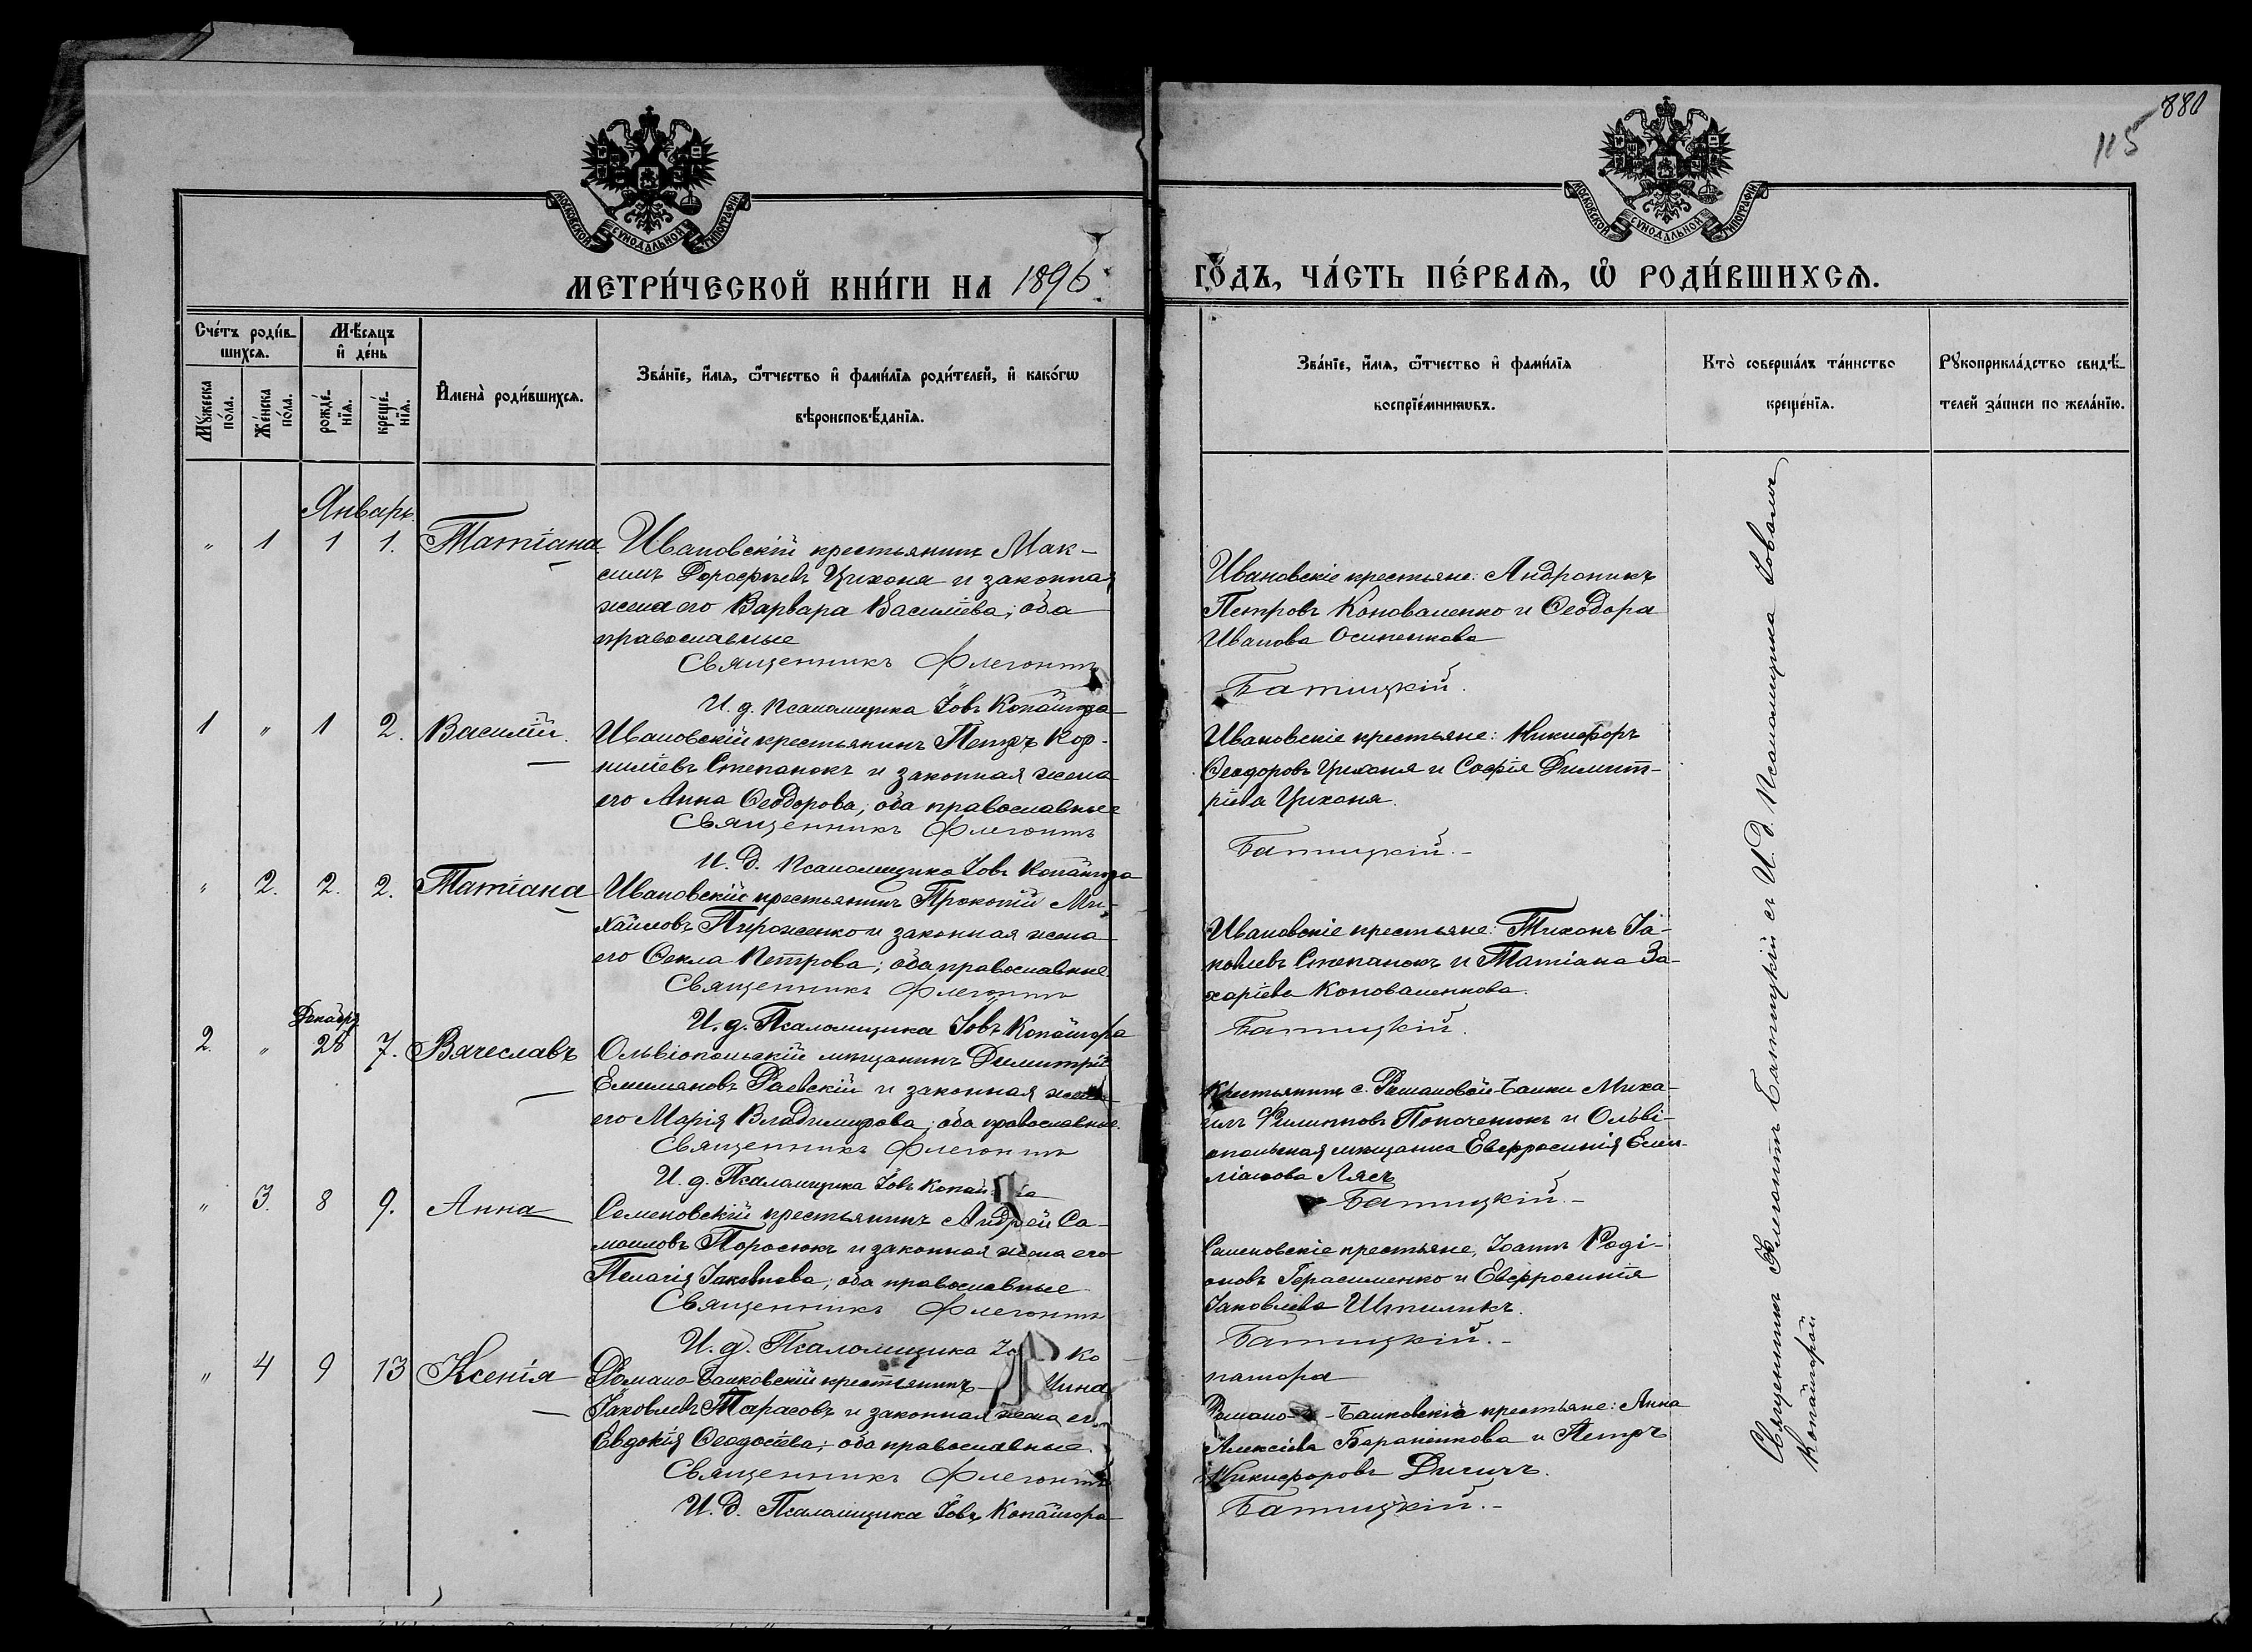 880
115
МОСКОВСКОЙ СѴНОДАЛЬНОЙ ТИПОГРАФІИ
МОСКОВСКОЙ СѴНОДАЛЬНОЙ ТИПОГРАФІИ
МЕТРИ́ЧЕСКОЙ КНИ́ГИ НА 1896 ГО́ДЪ, ЧА́СТЬ ПЕ́РВАѦ, Ѡ҆ РОДИ́ВШИХСѦ.
Сче́тъ роди́в-
шихсѧ.
Мѣ́сѧцъ
и҆ де́нь
Мꙋ́жеска
по́ла.
Же́нска
по́ла.
рожде́-
нїѧ.
креще́-
нїѧ.
И҆мена̀ роди́вшихсѧ.
Зва́нїе, и҆́мѧ, ѻ҆́тчество и҆ фами́лїѧ роди́телей, и҆ како́гѡ
вѣроисповѣ́данїѧ.
Зва́нїе, и҆́мѧ, ѻ҆́тчество и҆ фами́лїѧ
воспрїе́мникѡвъ.
Кто̀ соверша́лъ та́инство
креще́нїѧ.
Рꙋкоприкла́дство свидѣ́-
телей за́писи по жела́нїю.
Январь.
" 1 1 1. Татіана
Ивановскій крестьянинъ Мак-
симъ Дорофѣевъ Цихоня и законная
жена его Варвара Василіева; оба
православные
Священникъ Флегонтъ
И. д. псаломщика Іовъ Копайгора
Ивановскіе крестьяне: Андроникъ
Петровъ Коноваленко и Ѳеодора
Иванова Осипенкова
Батицкій.
1 " 1 2. Василій.
Ивановскій крестьянинъ Петръ Кор-
ниліевъ Степанокъ и законная жена
его Анна Ѳеодорова; оба православные
Священникъ Флегонтъ
И. д. псаломщика Іовъ Копайгора
Ивановскіе крестьяне: Никифоръ
Ѳеодоровъ Цихоня и Софія Димит-
ріева Цихоня.
Батицкій.-
" 2. 2. 2. Татіана
Ивановскій крестьянинъ Прокопій Ми-
хайловъ Пироженко и законная жена
его Ѳекла Петрова; оба православные.
Священникъ Флегонтъ
И. д. Псаломщика Іовъ Копайгора
Ивановскіе крестьяне: Тихонъ Іа-
ковлевъ Степанокъ и Татіана За-
харіева Коноваленкова.
Батицкій.
Декабря
2. " 28 7. Вячеславъ
Ольвіопольскій мѣщанинъ Димитрій
Емиліановъ Раевскій и законная жена
его Марія Владимирова; оба православные.
Священникъ Флегонтъ
И. д. Псаломщика Іовъ Копайгора
Крестьянинъ с. Романовой-Балки Миха-
илъ Филиповъ Попоченокъ и Ольві-
опольская мѣщанка Евфросинія Еми-
ліанова Лясъ
Батицкій.-
" 3. 8 9. Анна
Семеновскій крестьянинъ Андрей Са-
моиловъ Поросюкъ и законная жена его
Пелагія Іаковлева; оба православные
Священникъ Флегонтъ
И. д. Псаломщика Ко-
Семеновскіе крестьяне, Іоаннъ Роді-
оновъ Герасименко и Евфросинія
Іаковлева Шпиликъ.
Батицкій.-
пайгора
" 4 9 13 Ксенія
Романо-Балковскій крестьянинъ
Іаковлевъ Тарасовъ и законная жена его
Евдокія Ѳеодосіева; оба православные.
Священникъ Флегонтъ
И. д. Псаломщика Іовъ Копайгора
Романо-Балковскіе крестьяне: Анна
Алексіева Бараненкова и Петръ
Никифоровъ Дичичъ.
Батицкій.-
Священникъ Флегонтъ Батицкій съ И. д. Псаломщика Іовомъ
Копайгорой